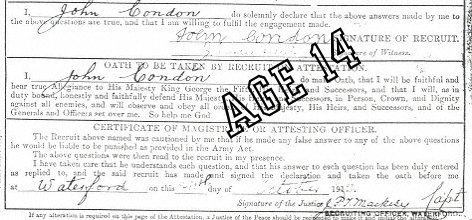 I, John Condon do solemnly declare that the above answers made by me to
the above questions are true, and that I am willing to fulfil the engagement made.
John Condon SIGNATURE OF RECRUIT.
Signature of Witness.
OATH TO BE TAKEN BY RECRUIT ATTESTATION.
I, John Condon do make Oath, that I will be faithful and
bear true Allegiance to His Majesty King George the Fifth Successors, and that I will, as in
duty bound, honestly and faithfully defend His Majesty, His Successors, in Person, Crown, and Dignity
against all enemies, and will observe and obey all Majesty, His Heirs, and Successors, and of the
Generals and Officers set over me. So help me God
AGE 14
CERTIFICATE OF MAGISTRATE OR ATTESTING OFFICER.
The Recruit above named was cautioned by me that if he made any false answer to any of the above questions
he would be liable to be punished as provided in the Army Act.
The above questions were then read to the recruit in my presence.
I have taken care that he understands each question, and that his answer to each question has been duly entered
as replied to, and the said recruit has made and signed the declaration and taken the oath before me
at Waterford on this day of October
Signature of the Justice Capt
RECRUITING OFFICER,
If any alteration is required on this page of the Attestation, a Justice of the Peace should be requested